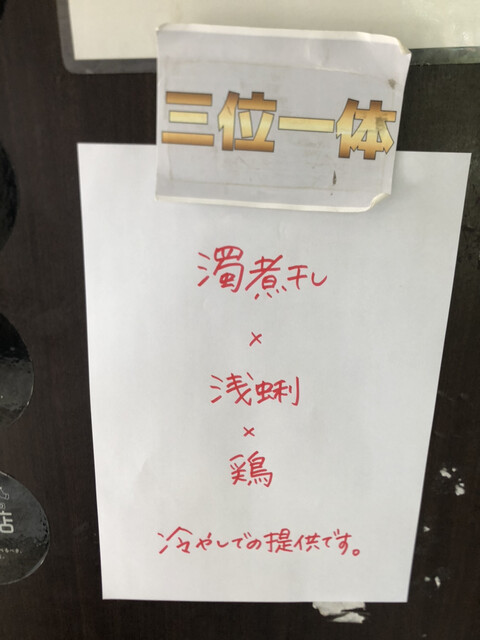 三位一体
濁煮干し
×
浅蜊
×
鶏
冷やしでの提供です。
店